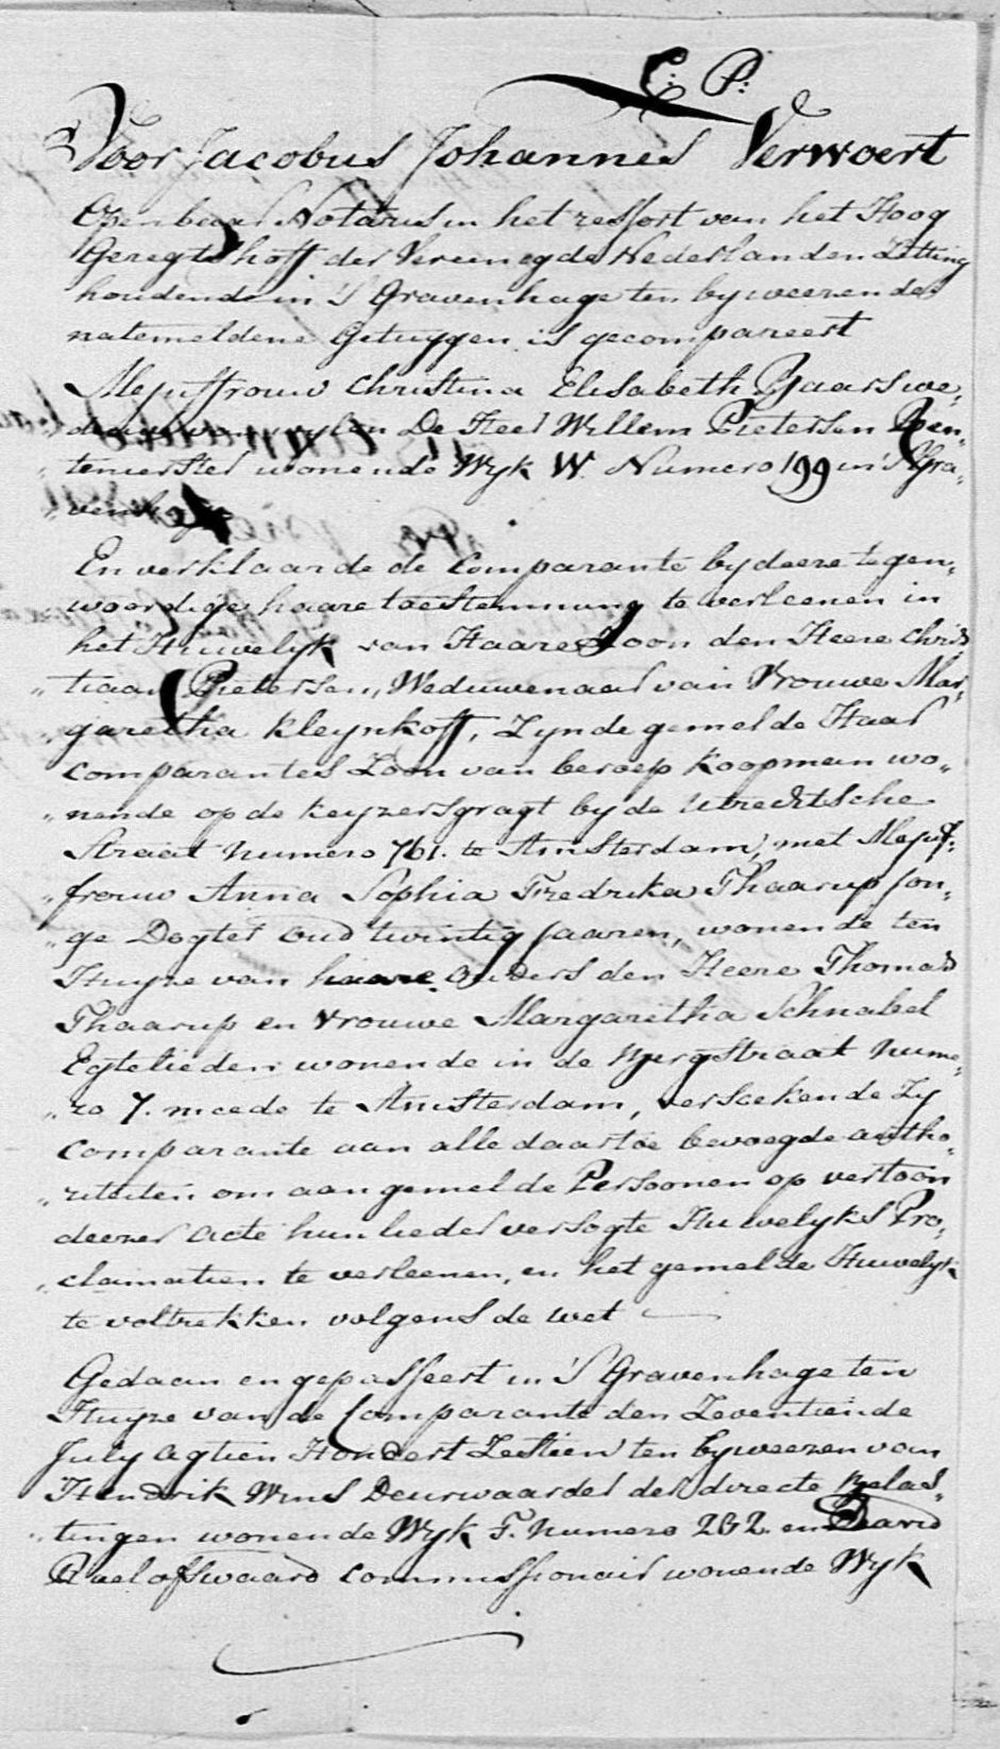 C: P:
Voor Jacobus Johannes Verwoert
Openbaar Notaris in het ressort van het Hoog
Geregtshoff der Vereenegde Nederlanden Zitting
houdende in 'S Gravenhage ten byweezende
natemeldene Getuygen is gecompareert
Mejuffrouw Christina Elisabeth Baars we„
van wylen De Heer Willem Pietersen
wonende Wyk W. Numero 199 in 'S Gra„
„venhage
En verklaarde de Comparante by deeze tegen„
woordige haare toestemming te verleenen in
het Huwelyk van Haare Zoon den Heere Chris
„tiaan Pietersen, Weduwenaar van Vrouwe Mar„
„garetha Kleynkoff, Zynde gemelde Haar
comparantes Zoon van beroep Koopman wo„
„nende op de Keyzersgragt by de Utrechtsche
Straat Numero 761. te Amsterdam, met Mejuf„
„frouw Anna Sophia Fredrika Thaarup Jon„
„ge Dogter oud twintig Jaaren, wonende ten
Huyze van haare Ouders den Heere Thomas
Thaarup en Vrouwe Margaretha Schnabel
Egtelieden wonende in de Nume„
„ro 7. meede te Amsterdam, versoekende Zy
Comparante aan alle daartoe bevoegde autho„
„riteiten om aan gemelde Persoonen op vertoon
deezer Acte hunlieder versogte Huwelyks Pro„
„clamatien te verleenen, en het gemelde Huwelyk
te voltrekken volgens de wet
Gedaan en gepasseert in 'S Gravenhage ten
Huyze van de Comparante den Zeventiende
July Agtien Hondert Zestien ten byweezen van
Hendrik Wins Deurwaarder der directe Belas„
„tingen wonende Wyk F. Numero 262. en David
Roelofswaard Commissionair wonende Wyk